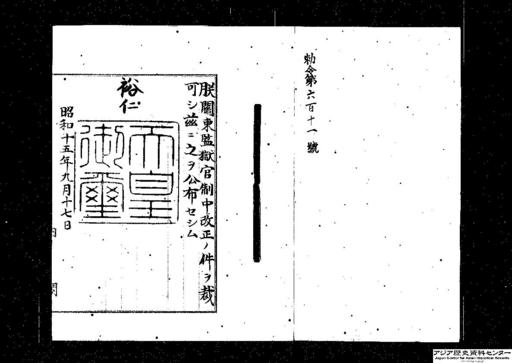 勅令第六百十一號
朕關東監獄官制中改正ノ件ヲ裁
可シ茲ニ之ヲ公布セシム
裕仁
天皇
御璽
昭和十五年九月十七日
内閣
アジア歴史資料センター
Japan Center for Asian Historical Records